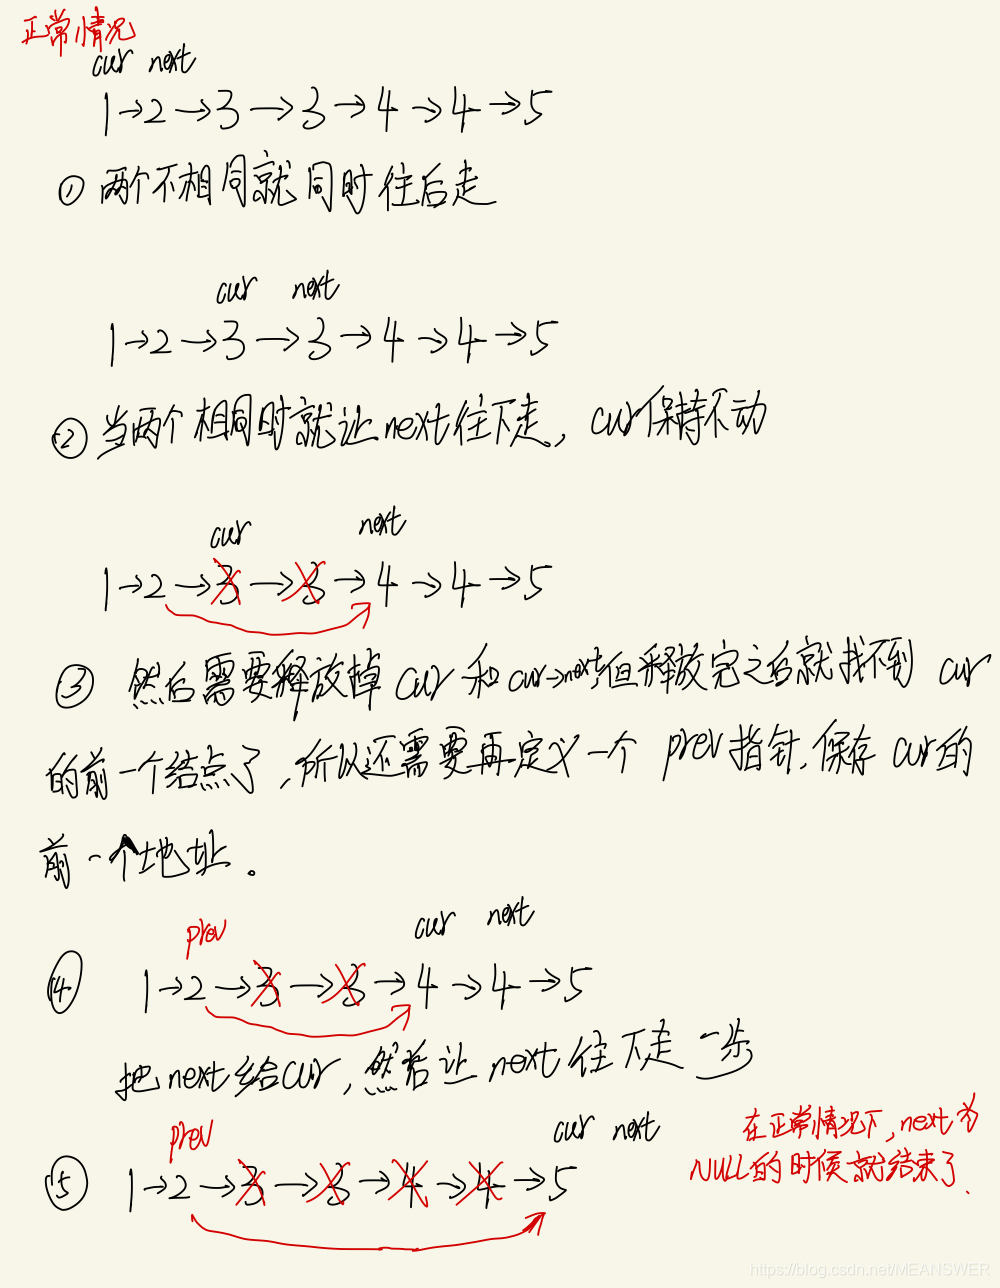 正常情况
cur next
1→2→3→3→4→4→5
① 两个不相同就同时往后走
cur next
1→2→3→3→4→4→5
② 当两个相同时就让next往下走, cur保持不动
cur next
1→2→3→3→4→4→5
③ 然后需要释放掉cur和cur->next,但释放完之后就找不到cur
的前一个结点了,所以还需要再定义一个prev指针,保存cur的
前一个地址。
prev cur next
④ 1→2→3→3→4→4→5
把next给cur,然后让next往下走一步
prev cur next
⑤ 1→2→3→3→4→4→5
在正常情况下,next为
NULL的时候就结束了.
https://blog.csdn.net/MEANSWER